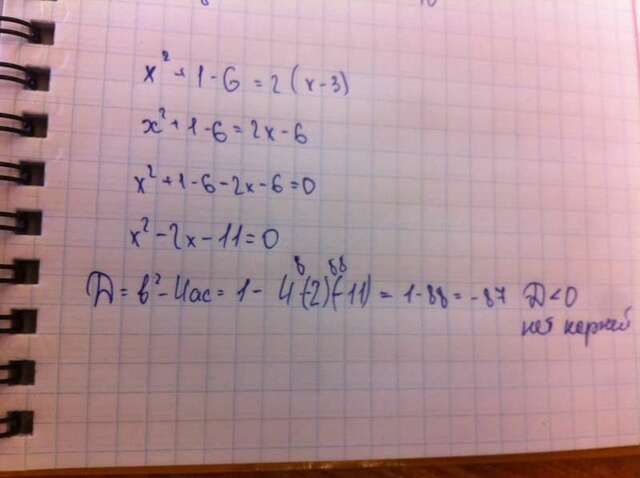 x² + 1 - 6 = 2(x-3)
x² + 1 - 6 = 2x - 6
x² + 1 - 6 - 2x - 6 = 0
x² - 2x - 11 = 0
8 88
D = b² - 4ac = 1 - 4·(2)(-11) = 1 - 88 = -87 D < 0
нет корней